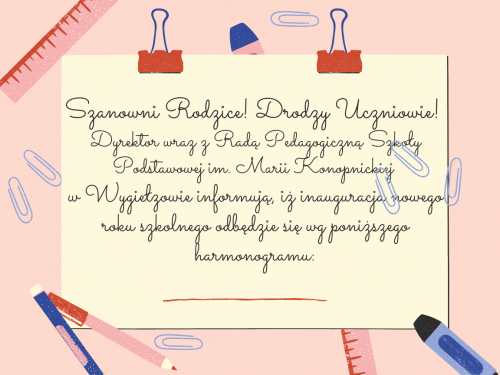 Szanowni Rodzice! Drodzy Uczniowie!
Dyrektor wraz z Radą Pedagogiczną Szkoły
Podstawowej im. Marii Konopnickiej
w Wygiełzowie informują, iż inauguracja nowego
roku szkolnego odbędzie się wg poniższego
harmonogramu: